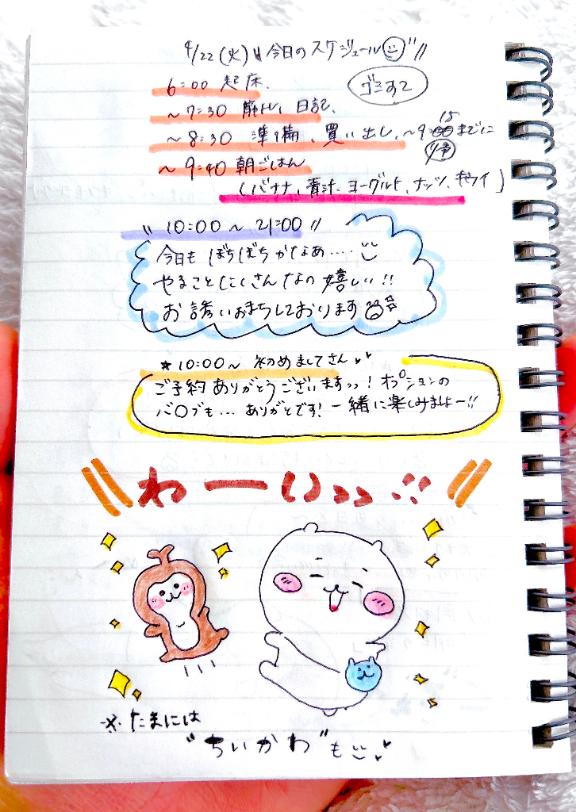 4/22 (火) 今日のスケジュール
6:00 起床、
ゴミすて
~7:30 筋トレ、日記、
~8:30 準備、買い出し、~9:15までに
~9:40 朝ごはん
(バナナ、青汁、ヨーグルト、ナッツ、キウイ)
"10:00~21:00"
今日も ぼちぼち かなぁ....
やること たくさんなの 嬉しい!!
お誘いおまちしております
★10:00~ 初めましてさん
ご予約 ありがとうございますっっ! オプションの
バ〇ブも... ありがとです! 一緒に楽しみましょー!!
わーいっっ!!
※たまには
"ちいかわ"も